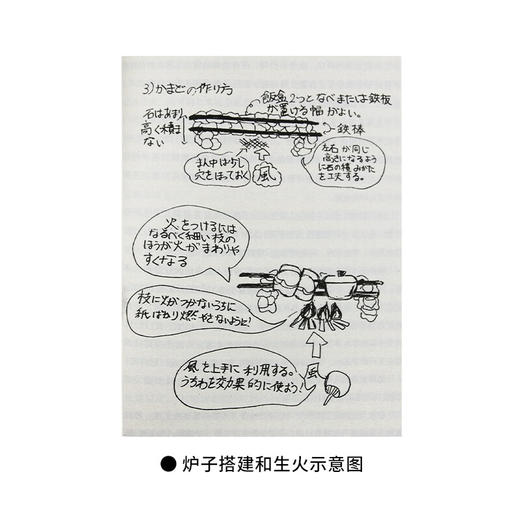 3)かまどの作り方
飯盒2つとなべまたは鉄板
が置ける幅がよい。
石はあまり
高く積ま
ない
鉄棒
まん中は少し
穴をほっておく
風
左右が同じ
高さになるよう
に石の積みかた
を工夫する。
火をつけるには
なるべく細い枝の
ほうが火がまわりや
すくなる
枝に火がつかないうちに
紙ばかり燃やさないように!
風を上手に利用する。
うちわを効果的に使おう!
風
● 炉子搭建和生火示意图